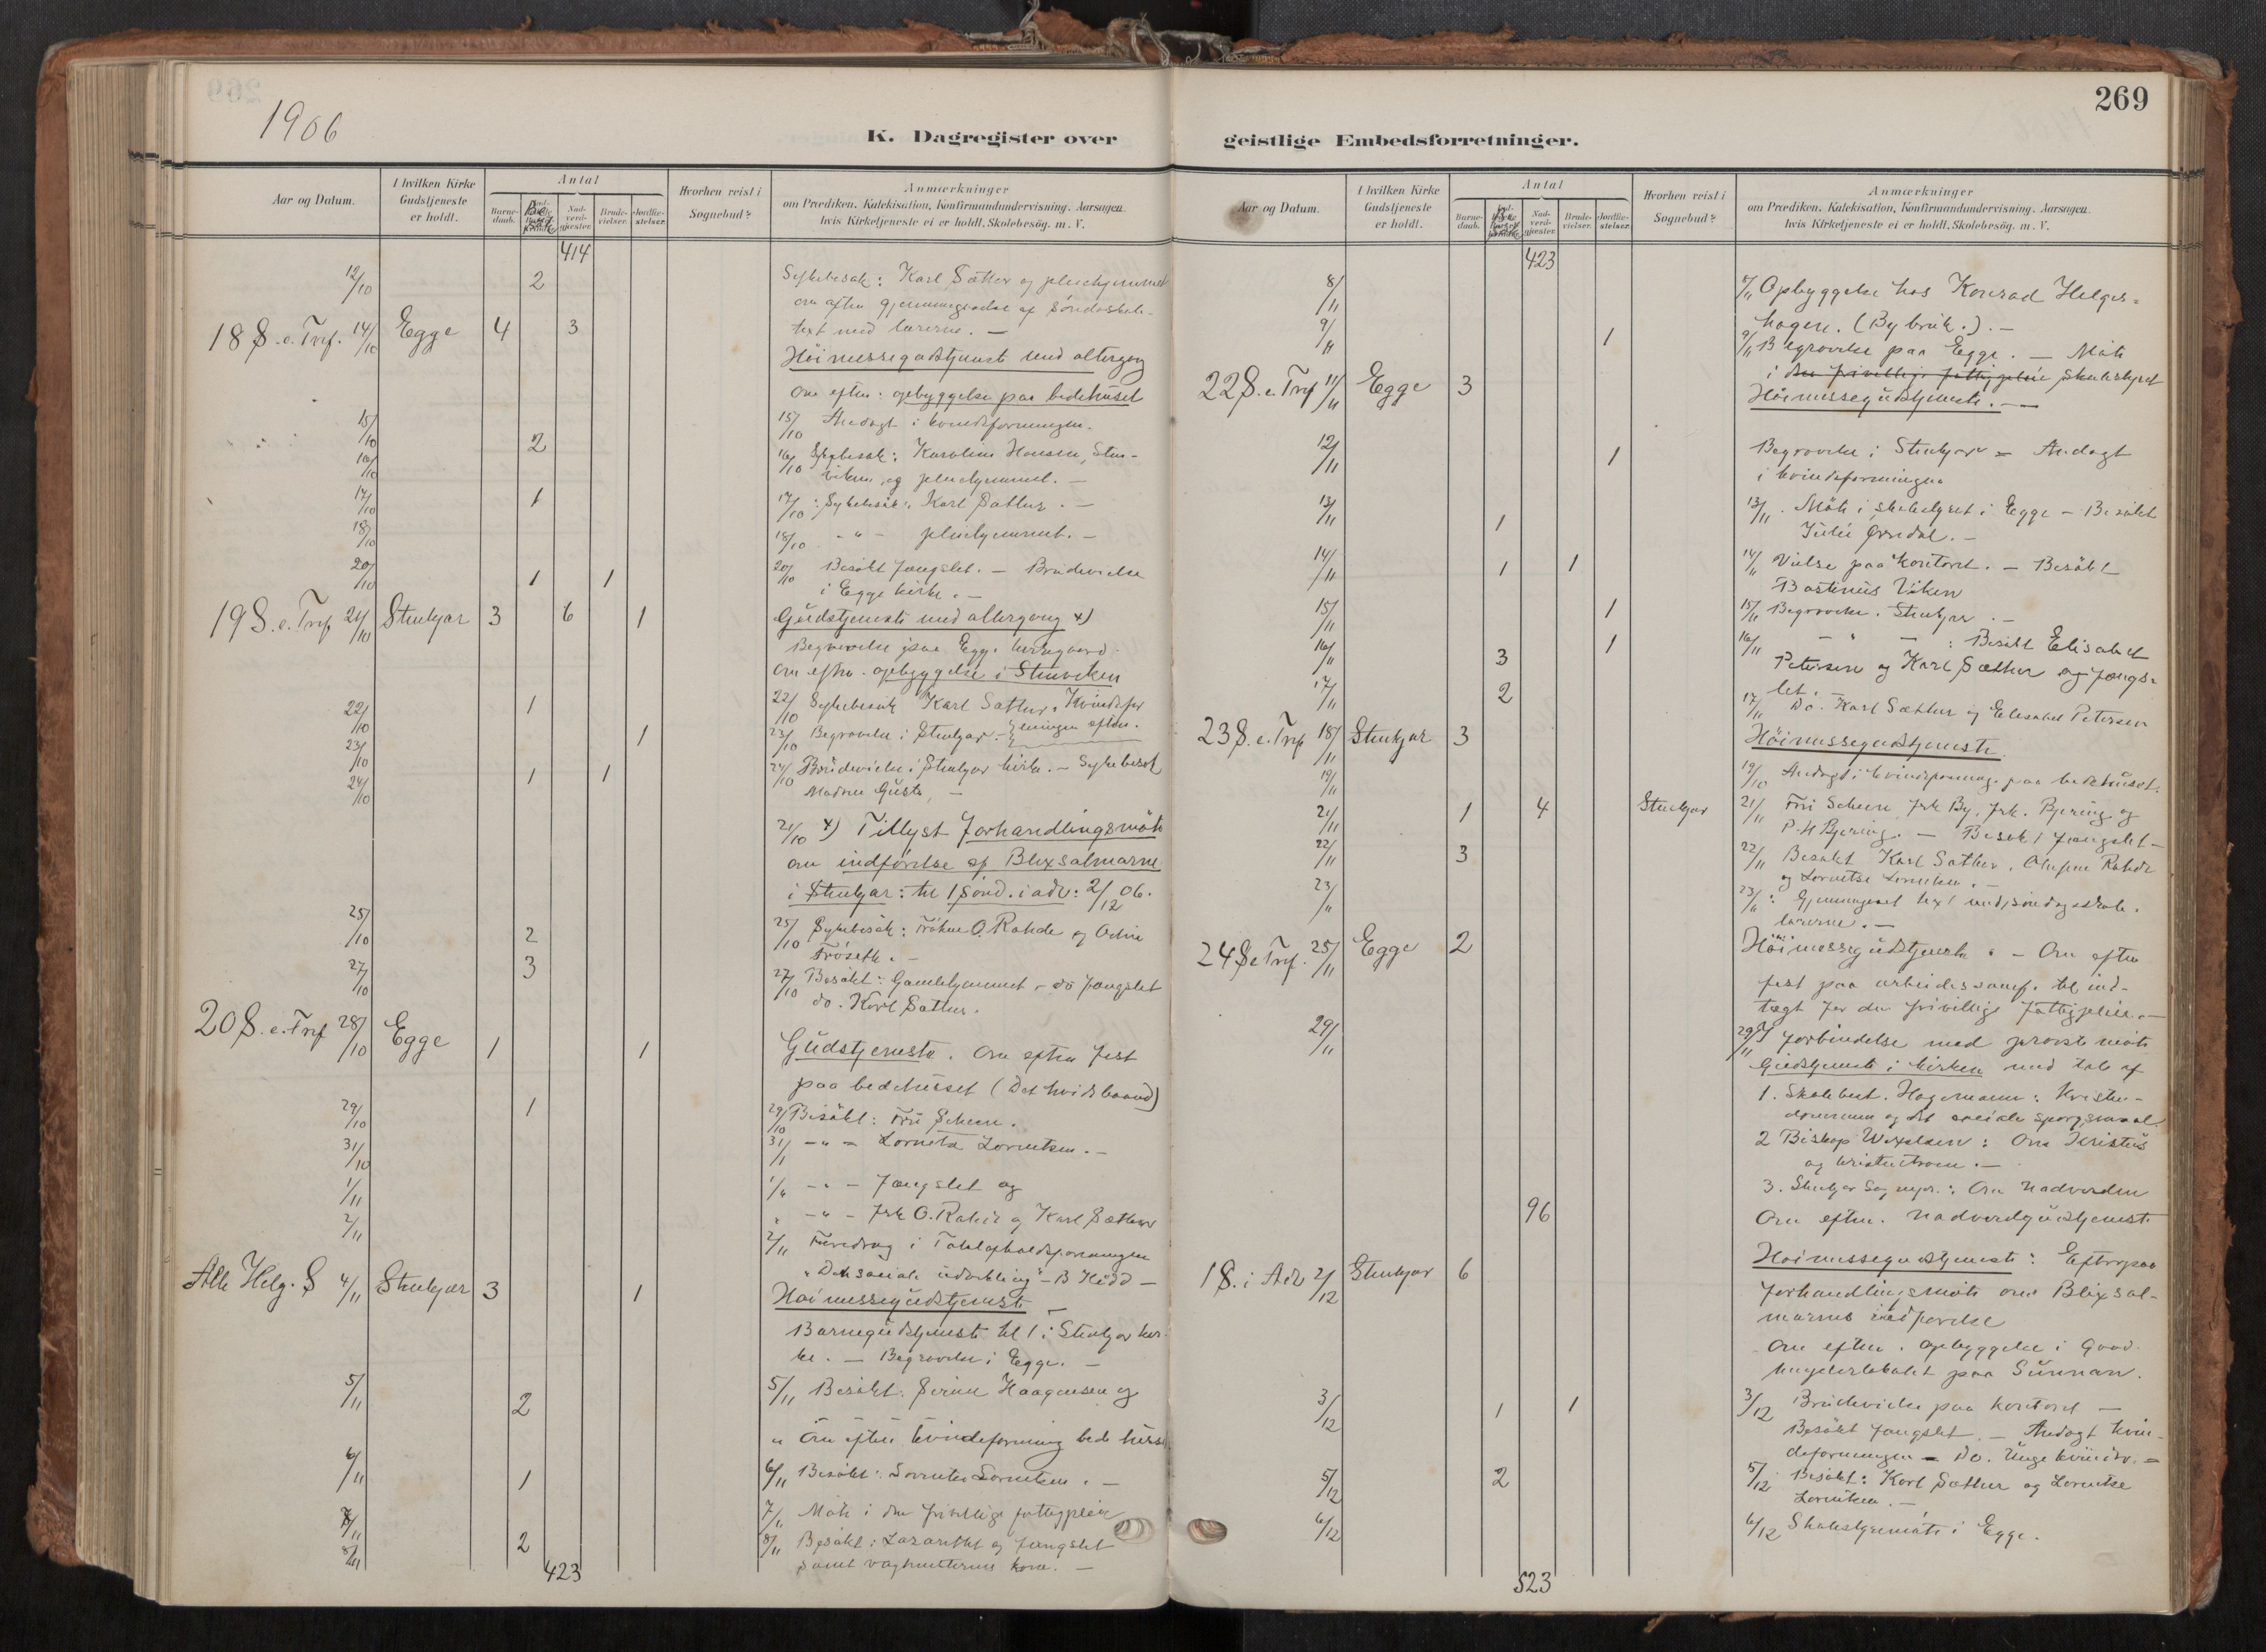 1906
K. Dagregister over
Aar og Datum.
I hvilken Kirke Gudstjeneste er holdt.
Antal
Barne-daab.
Nad-verd-gjester.
Brude-vielser.
Jordfæ-stelser.
Hvorhen reist i Sognebud?
Anmærkninger
om Prædiken. Katekisation, Konfirmandundervisning. Aarsagen.
hvis Kirketjeneste ei er holdt, Skolebesög. m. V.
414
12/10 2 Sykebesøk: Karl Sæther og pleiehjemmet
om aften gjennemgaaelse af søndaskole-
18 S. e. Tref. 14/10 Egge 4 3 text med lærerne. —
Høimessegudstjeneste med altergang
Om eften: opbyggelse paa bedehuset
15/10 15/10 Andagt i kvindeforeningen.
16/10 2 16/10 Sykebesøk: Karoline Hansen, Sten-
viken og pleiehjemmet. —
17/10 1 17/10: Sykebesøk: Karl Sæther. —
18/10 18/10 -"- pleiehjemmet. —
20/10 1 1 20/10 Besøkt fængslet. — Brudevielse
i Egge kirke. —
19 S. e. Tref 21/10 Stenkjær 3 6 1 Gudstjeneste med altergang x)
Begravelse paa Egge kirkegaard.
Om eften. opbyggelse i Stenviken
22/10 1 22/10 Sykebesøk Karl Sæther. Kvindefor
eningen eften.
23/10 1 23/10 Begravelse i Stenkjær. —
24/10 1 1 24/10 Brudevielse i Stenkjær kirke. — Sykebesøk
Madam Gusta, —
21/10 x) Tillyst Forhandlingsmøte
om indførelse af Blixsalmerne
i Stenkjær: til 1 sønd. i adv: 2/12 06.
25/10 2 25/10 Sykebesøk: Frøken O. Rahde og
Frøseth. —
27/10 3 27/10 Besøkt: Gamlehjemmet — do fængslet
do. Karl Sæther.
20 S. e. Tref 28/10 Egge 1 1 Gudstjeneste. Om eften fest
paa bedehuset (Det hvide baand)
29/10 1 29/10 Besøkt: Fru Scheen.
31/10 31/1 -"- Lorentse Lorentsen. —
1/11 1/11 -"- Fængslet og
2/11 " -"- frk O. Rahde og Karl Sæther
2/11 Foredrag i Totalafholdsforeningen
"Den sociale udvikling" — B Hedd —
Alle Helg. S 4/11 Stenkjær 3 1 Høimessegudstjeneste
Barnegudstjeneste kl 1 i Stenkjær kir-
ke. — Begravelse i Egge. —
5/11 2 5/11 Besøkt: Serine Haagensen og
" Om eften kvindeforening bedehuset
6/11 1 6/11 Besøkt: Lorentse Lorentsen. —
7/11 7/11 Møte i den frivillige fattigpleie
8/11 2 8/11 Besøkt: Lazarettet og fængslet
samt vagtmesterens kone. —
423
269
geistlige Embedsforretninger.
Aar og Datum.
I hvilken Kirke Gudstjeneste er holdt.
Antal
Barne-daab.
Nad-verd-gjester.
Brude-vielser.
Jordfæ-stelser.
Hvorhen reist i Sognebud?
Anmærkninger
om Prædiken. Katekisation, Konfirmandundervisning. Aarsagen.
hvis Kirketjeneste ei er holdt, Skolebesög. m. V.
423
8/11 8/11 Opbyggelse hos Konrad Helges-
hagen. (By bruk.). —
9/11 1 9/11 Begravelse paa Egge. — Møte
i den frivillige fattigpleie skolestyret
22 S. e Tref 11/11 Egge 3 Høimessegudstjeneste. —
12/11 1 Begravelse i Stenkjær — Andagt
i kvindeforeningen
13/11 1 13/11. Møte i skolestyret i Egge — Besøkt
Julie Ørsdal. —
14/11 1 1 14/11 Vielse paa kontoret. — Besøkt
Bastinus Viken
15/11 1 15/11 Begravelse. Stenkjær. —
16/11 3 1 16/11 — " — : Besøkt Elisabet
Petersen og Karl Sæther og fængs-
let. —
17/11 2 17/11 Do. Karl Sæther og Elisabet Petersen
23 S. e. Tref 18/11 Stenkjær 3 Høimessegudstjeneste.
19/11 19/10 Andagt i kvindeforening. paa bedehuset.
21/11 1 4 Stenkjær 21/11 Fru Scheen, frk By, frk. Bjering og
P. H Bjering. — Besøkt fængslet —
22/11 3 22/11 Besøkt Karl Sæther, Rahde
og Lorentse Lorentsen. —
23/11 23/11: Gjennemgaaet text med søndagsskole-
lærerne. —
24 S e Tref. 25/11 Egge 2 Høimessegudstjeneste. — Om eften
fest paa arbeidersamf. til ind-
tægt for den frivillige fattigpleie. —
29/11 29/11 I forbindelse med provstemøte
Gudstjeneste i kirken med tale af
1. Skolebest. Hagemann: Kristen-
dommen og det sociale spørgsmaal.
2 Biskop Wexelsen: Om Kristus
og kristentroen. —
3. Stenkjær Sognepr.: Om Nadverden
96 Om eften. Nadverdgudstjeneste
1 S. i Adv 2/12 Stenkjær 6 Høimessegudstjeneste: Efterpaa
forhandlingsmøte om Blixsal-
mernes indførelse
Om eften. opbyggelse i Good-
templerlokalet paa Sunnan.
3/12 1 1 3/12 Brudevielse paa kontoret —
Besøkt fængslet. — Andagt kvin-
deforeningen — Do. Unge kvinder. —
5/12 2 5/12 Besøkt: Karl Sæther og Lorentse
Lorentsen. —
6/12 6/12 Skolestyremøte i Egge.
523